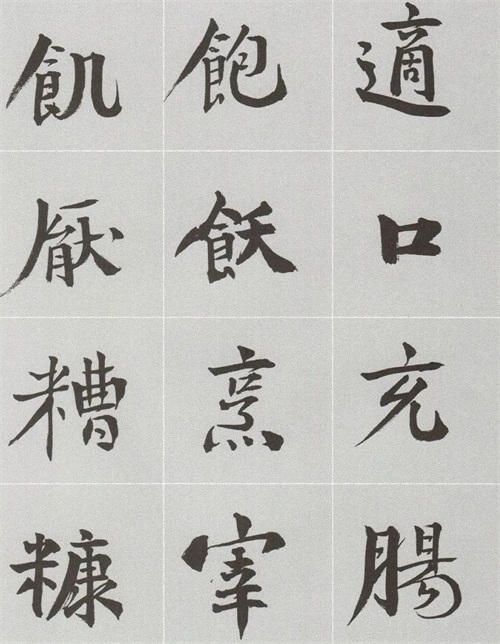 適口充腸
飽飫烹宰
飢厭糟糠